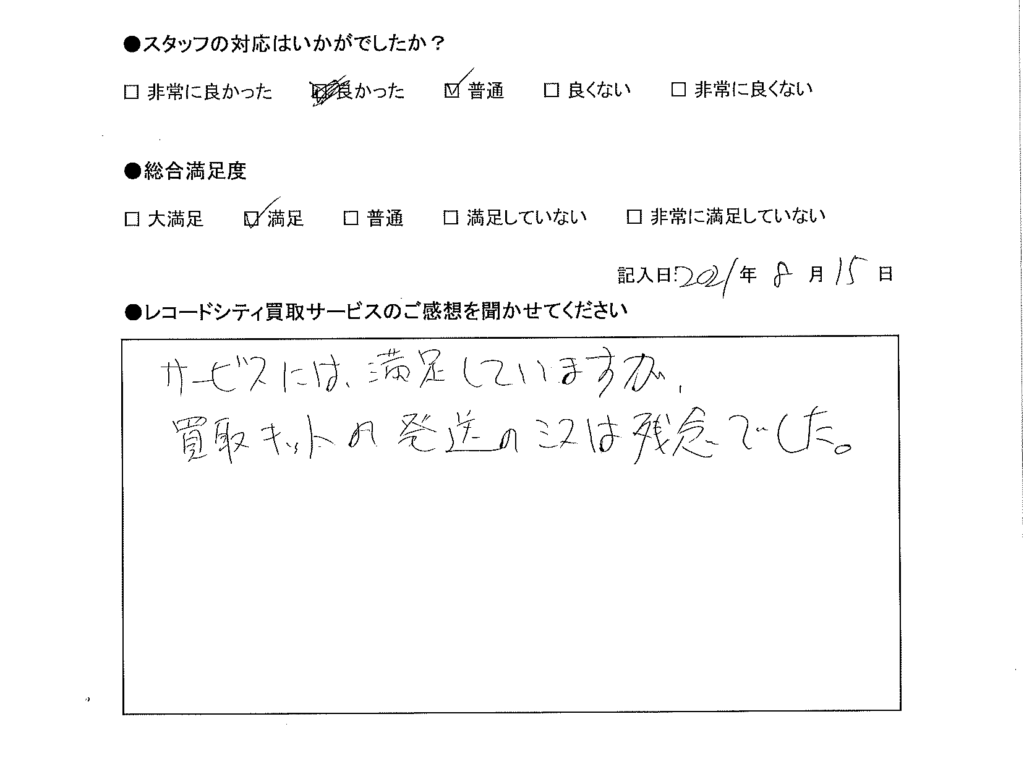 ●スタッフの対応はいかがでしたか？
□ 非常に良かった □ 良かった ☑ 普通 □ 良くない □ 非常に良くない
●総合満足度
□ 大満足 ☑ 満足 □ 普通 □ 満足していない □ 非常に満足していない
記入日:2021年 8月 15日
●レコードシティ買取サービスのご感想を聞かせてください
サービスには、満足していますが、
買取キットの発送のミスは残念でした。